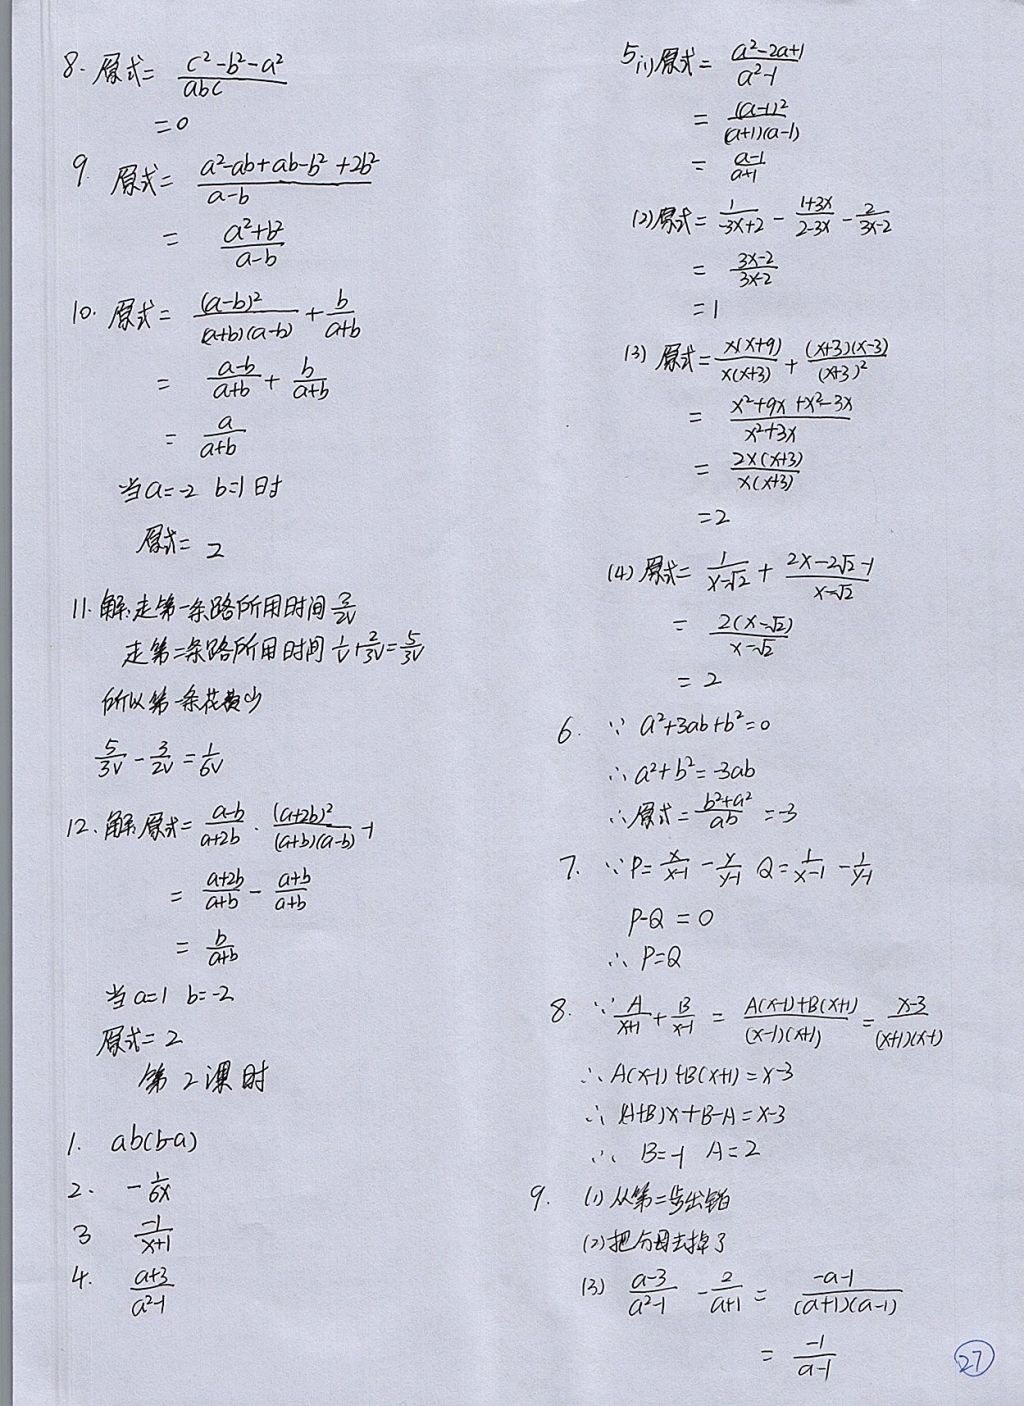 8. 原式= (c²-b²-a²)/(abc)
=0
9. 原式= (a²-ab+ab-b²+2b²)/(a-b)
= (a²+b²)/(a-b)
10. 原式= (a-b)²/((a+b)(a-b)) + b/(a+b)
= (a-b)/(a+b) + b/(a+b)
= a/(a+b)
当a=-2 b=1时
原式= 2
11. 解:走第一条路所用时间 3/(2v)
走第二条路所用时间 1/v+2/(3v)=5/(3v)
所以第一条花费少
5/(3v) - 3/(2v) = 1/(6v)
12. 解:原式= (a-b)/(a+2b) · (a+2b)²/((a+b)(a-b)) -1
= (a+2b)/(a+b) - (a+b)/(a+b)
= b/(a+b)
当a=1 b=-2
原式=2
第2课时
1. ab(b-a)
2. -1/(6x)
3 -1/(x+1)
4. (a+3)/(a²-1)
5(1)原式= (a²-2a+1)/(a²-1)
= (a-1)²/((a+1)(a-1))
= (a-1)/(a+1)
(2)原式= 1/(-3x+2) - (1+3x)/(2-3x) - 2/(3x-2)
= (3x-2)/(3x-2)
=1
(3) 原式= x(x+9)/(x(x+3)) + (x+3)(x-3)/(x+3)²
= (x²+9x+x²-3x)/(x²+3x)
= 2x(x+3)/(x(x+3))
=2
(4) 原式= 1/(x-√2) + (2x-2√2-1)/(x-√2)
= 2(x-√2)/(x-√2)
= 2
6. ∵ a²+3ab+b²=0
∴a²+b²=-3ab
∴原式= (b²+a²)/(ab) =-3
7. ∵P= x/(x-1) - y/(y-1) Q= 1/(x-1) - 1/(y-1)
P-Q=0
∴ P=Q
8. ∵ A/(x+1) + B/(x-1) = (A(x-1)+B(x+1))/((x-1)(x+1)) = (x-3)/((x+1)(x-1))
∴A(x-1)+B(x+1)=x-3
∴ (A+B)x+B-A=x-3
∴ B=-1 A=2
9. (1)从第二步出错
(2)把分母去掉了
(3) (a-3)/(a²-1) - 2/(a+1) = (-a-1)/((a+1)(a-1))
= -1/(a-1)
27